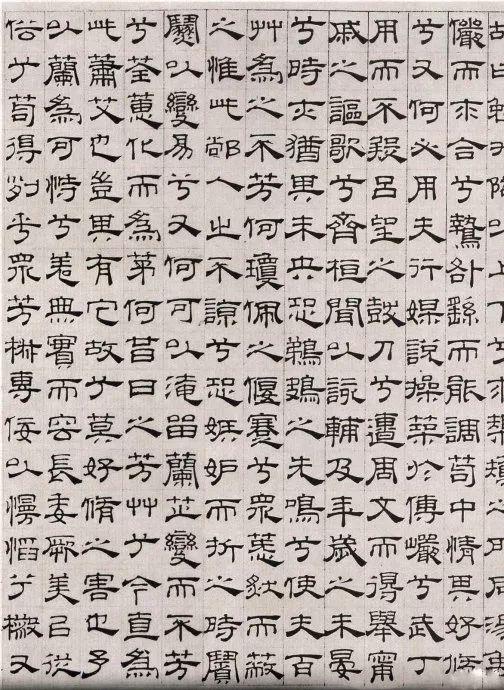 儼而求合兮摯咎繇而能調苟中情其好脩
兮又何必用夫行媒說操築於傅巖兮武丁
用而不疑呂望之鼓刀兮遭周文而得舉甯
戚之謳歌兮齊桓聞以該輔及年歲之未晏
兮時亦猶其未央恐鵜鴂之先鳴兮使夫百
艸為之不芳何瓊佩之偃蹇兮眾薆然而蔽
之惟此人之不諒兮恐嫉妒而折之時
以變易兮又何可以淹留蘭芷變而不芳
兮荃蕙化而為茅何昔日之芳艸兮今直為
此蕭艾也豈其有它故兮莫好脩之害也予
以蘭為可恃兮羌無實而容長委厥美以從
俗兮苟得列乎眾芳椒專佞以慢慆兮樧又